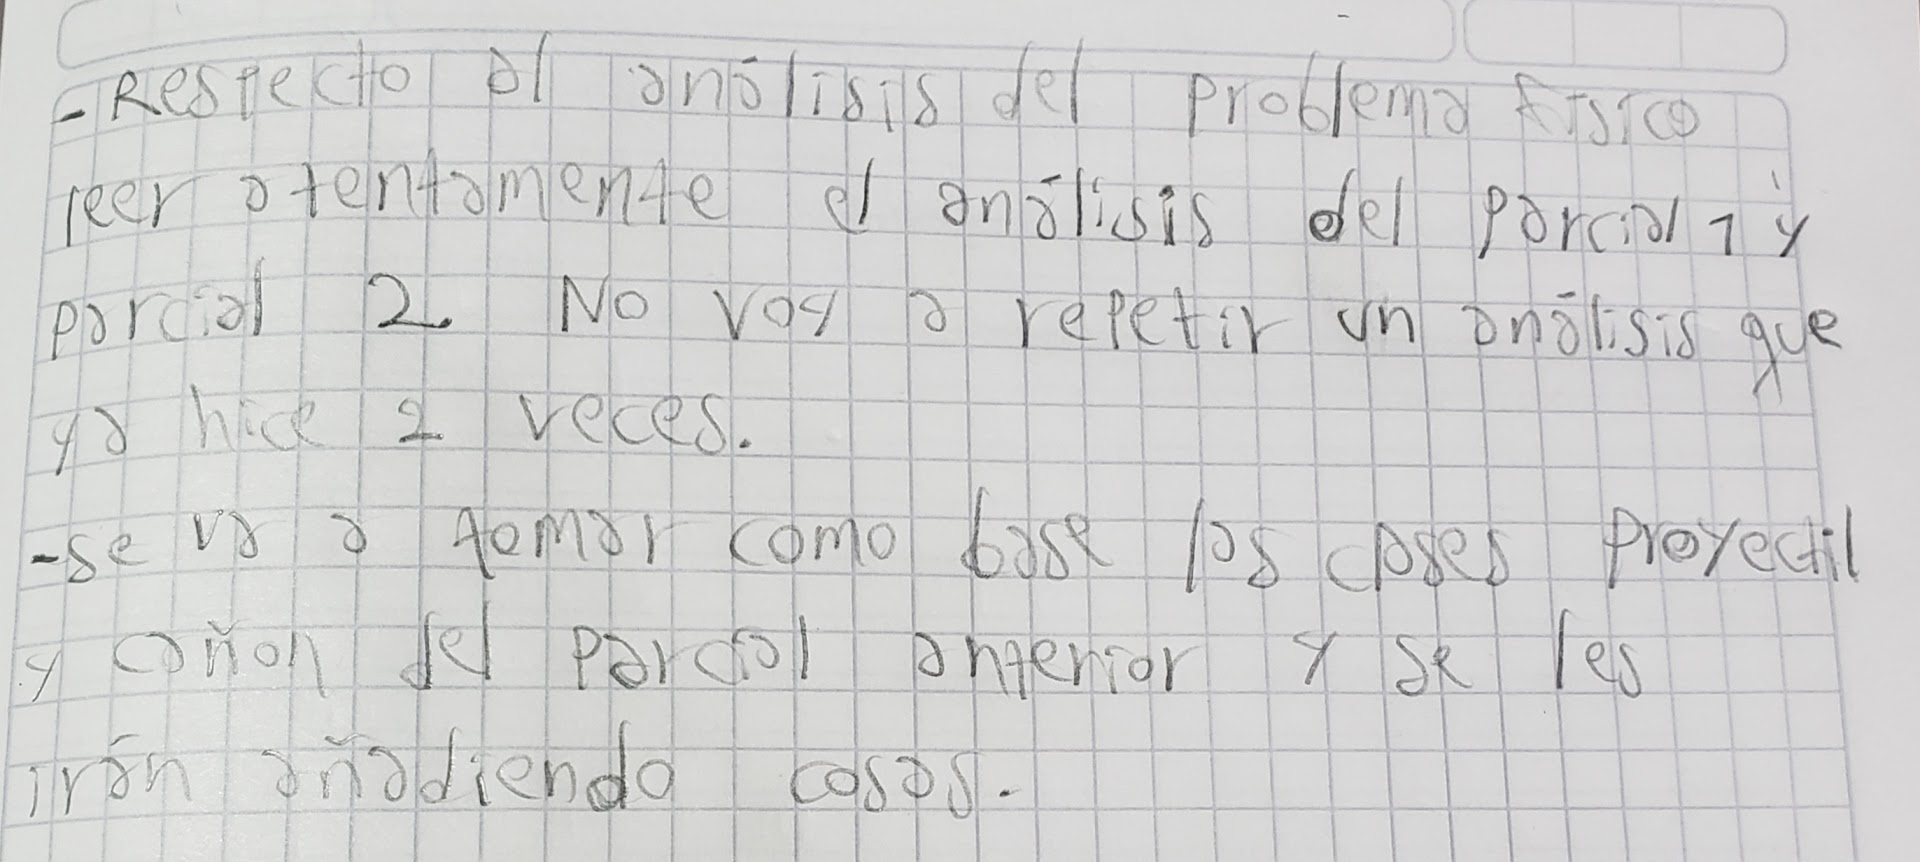 - Respecto al análisis del problema físico
leer atentamente el análisis del parcial 1 y
parcial 2. No voy a repetir un análisis que
ya hice 2 veces.
-se va a tomar como base las cases proyectil
y cañon del parcial anterior y se les
irán añadiendo cosas.